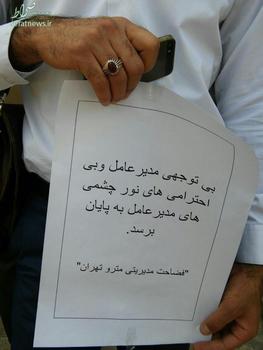 صراط
ratnews.ir
بی توجهی مدیرعامل وبی
احترامی های نور چشمی
های مدیرعامل به پایان
برسد.
"فضاحت مدیریتی مترو تهران"